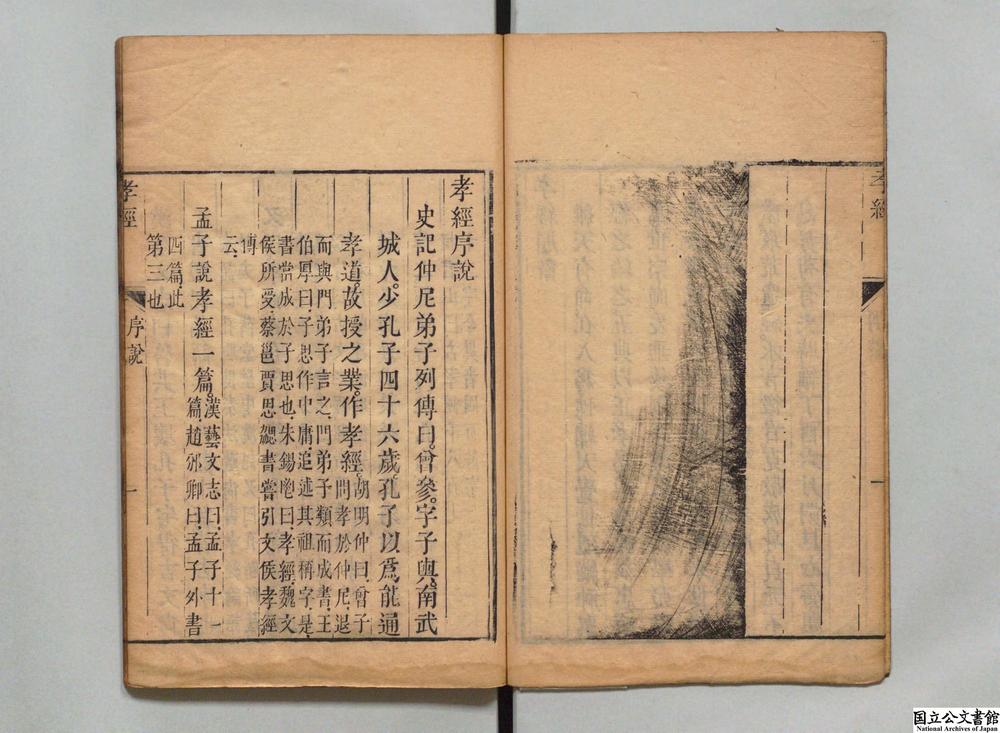 孝經
一
孝經序說
史記仲尼弟子列傳曰。曾參。字子輿。南武
城人。少孔子四十六歲。孔子以爲。能通
孝道。故授之業。作孝經。胡明仲曰。曾子
問孝於仲尼。退
而與門弟子言之。門弟子類而成書。王
伯厚曰。子思作中庸。追述其祖稱字。是
書當成於子思也。朱錫鬯曰。孝經魏文
侯所受。蔡邕賈思勰書嘗引文侯孝經
傳
云。
孟子說孝經一篇。漢藝文志曰。孟子十一
篇。趙邠卿曰。孟子外書
四篇此
第三也
孝經
序說
一
国立公文書館
National Archives of Japan